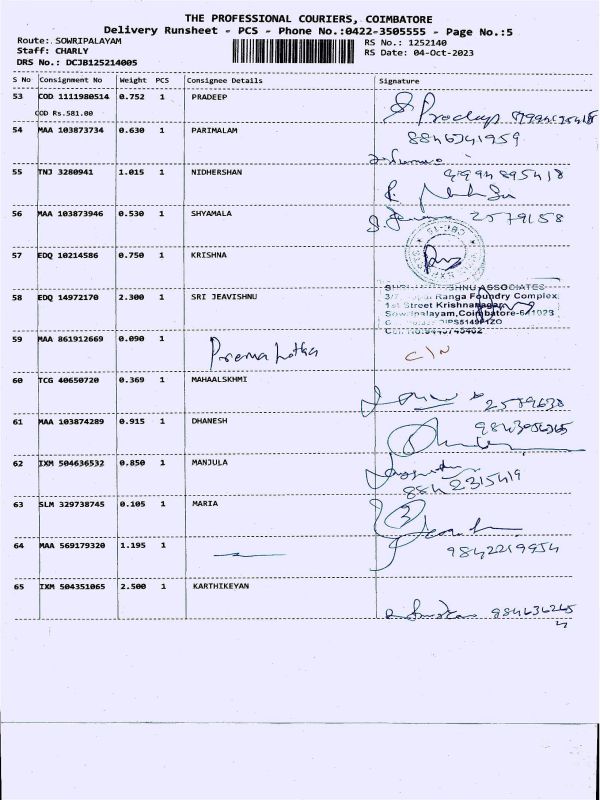 THE PROFESSIONAL COURIERS, COIMBATORE
Delivery Runsheet - PCS - Phone No.:0422-3505555 - Page No.:5
Route: SOWRIPALAYAM RS No.: 1252140
Staff: CHARLY RS Date: 04-Oct-2023
DRS No.: DCJB125214005
S No Consignment No Weight PCS Consignee Details Signature
53 COD 1111980514 0.752 1 PRADEEP
COD Rs.581.00
54 MAA 103873734 0.630 1 PARIMALAM 8846341959
55 TNJ 3280941 1.015 1 NIDHERSHAN 9994895418
56 MAA 103873946 0.530 1 SHYAMALA 2579158
57 EDQ 10214586 0.750 1 KRISHNA
58 EDQ 14972170 2.300 1 SRI JEAVISHNU
ASSOCIATES
Ranga Foundry Complex
1st Street Krishnanagar
Sowripalayam, Coimbatore-641028
59 MAA 861912669 0.090 1 Prema Latha C/N
60 TCG 40650720 0.369 1 MAHAALSKHMI 2579638
61 MAA 103874289 0.915 1 DHANESH
62 IXM 504636532 0.850 1 MANJULA 8842315419
63 SLM 329738745 0.105 1 MARIA
64 MAA 569179320 1.195 1 9842219954
65 IXM 504351065 2.500 1 KARTHIKEYAN